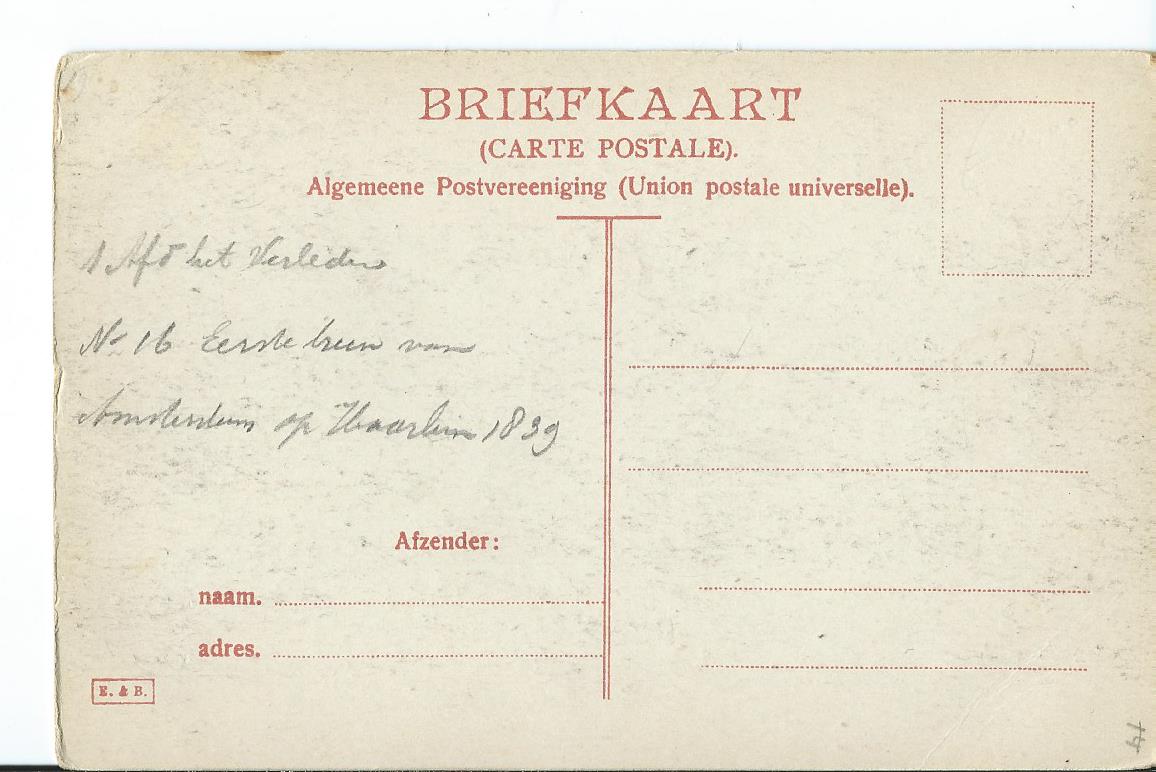 BRIEFKAART
(CARTE POSTALE).
Algemeene Postvereeniging (Union postale universelle).
1 Afd het Verleden
No 16 Eerste trein van
Amsterdam op Haarlem 1839
Afzender:
naam.
adres.
E. & B.